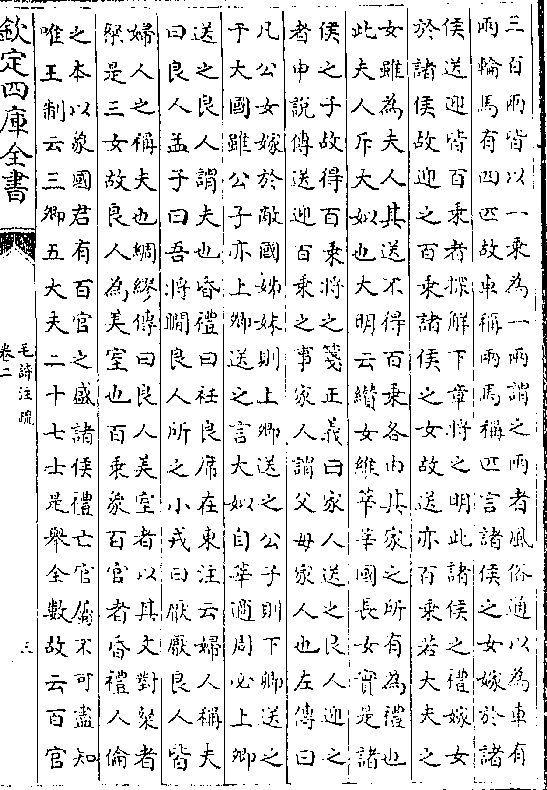 三百兩皆以一乗為一兩謂之兩者風俗通以為車有
兩輪馬有四匹故車稱兩馬稱匹言諸侯之女嫁於諸
侯送迎皆百乗者探解下章將之明此諸侯之禮嫁女
於諸侯故迎之百乗諸侯之女故送亦百乗若大夫之
女雖為夫人其送不得百乗各由其家之所有為禮也
此夫人斥大姒也大明云纘女維莘莘國長女實是諸
侯之子故得百乗將之箋正義曰家人送之良人迎之
者申說傳送迎百乗之事家人謂父母家人也左傳曰
凡公女嫁於敵國姊妹則上卿送之公子則下卿送之
于大國雖公子亦上卿送之言大姒自莘適周必上卿
送之良人謂夫也昏禮曰衽良席在東注云婦人稱夫
曰良人孟子曰吾將瞷良人所之小戎曰厭厭良人皆
婦人之稱夫也綢繆傳曰良人美室者以其文對粲者
粲是三女故良人為美室也百乗象百官者昏禮人倫
之本以象國君有百官之盛諸侯禮亡官屬不可盡知
唯王制云三卿五大夫二十七士是舉全數故云百官
欽定四庫全書
毛詩注疏
卷二
三